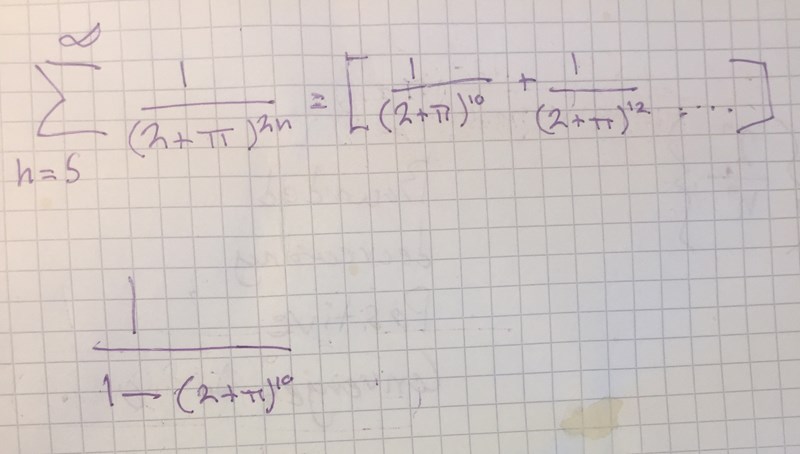 ∞
∑ 1/(2+π)^2n = [1/(2+π)^10 + 1/(2+π)^12 ....]
n=5
1/(1-(2+π)^10)